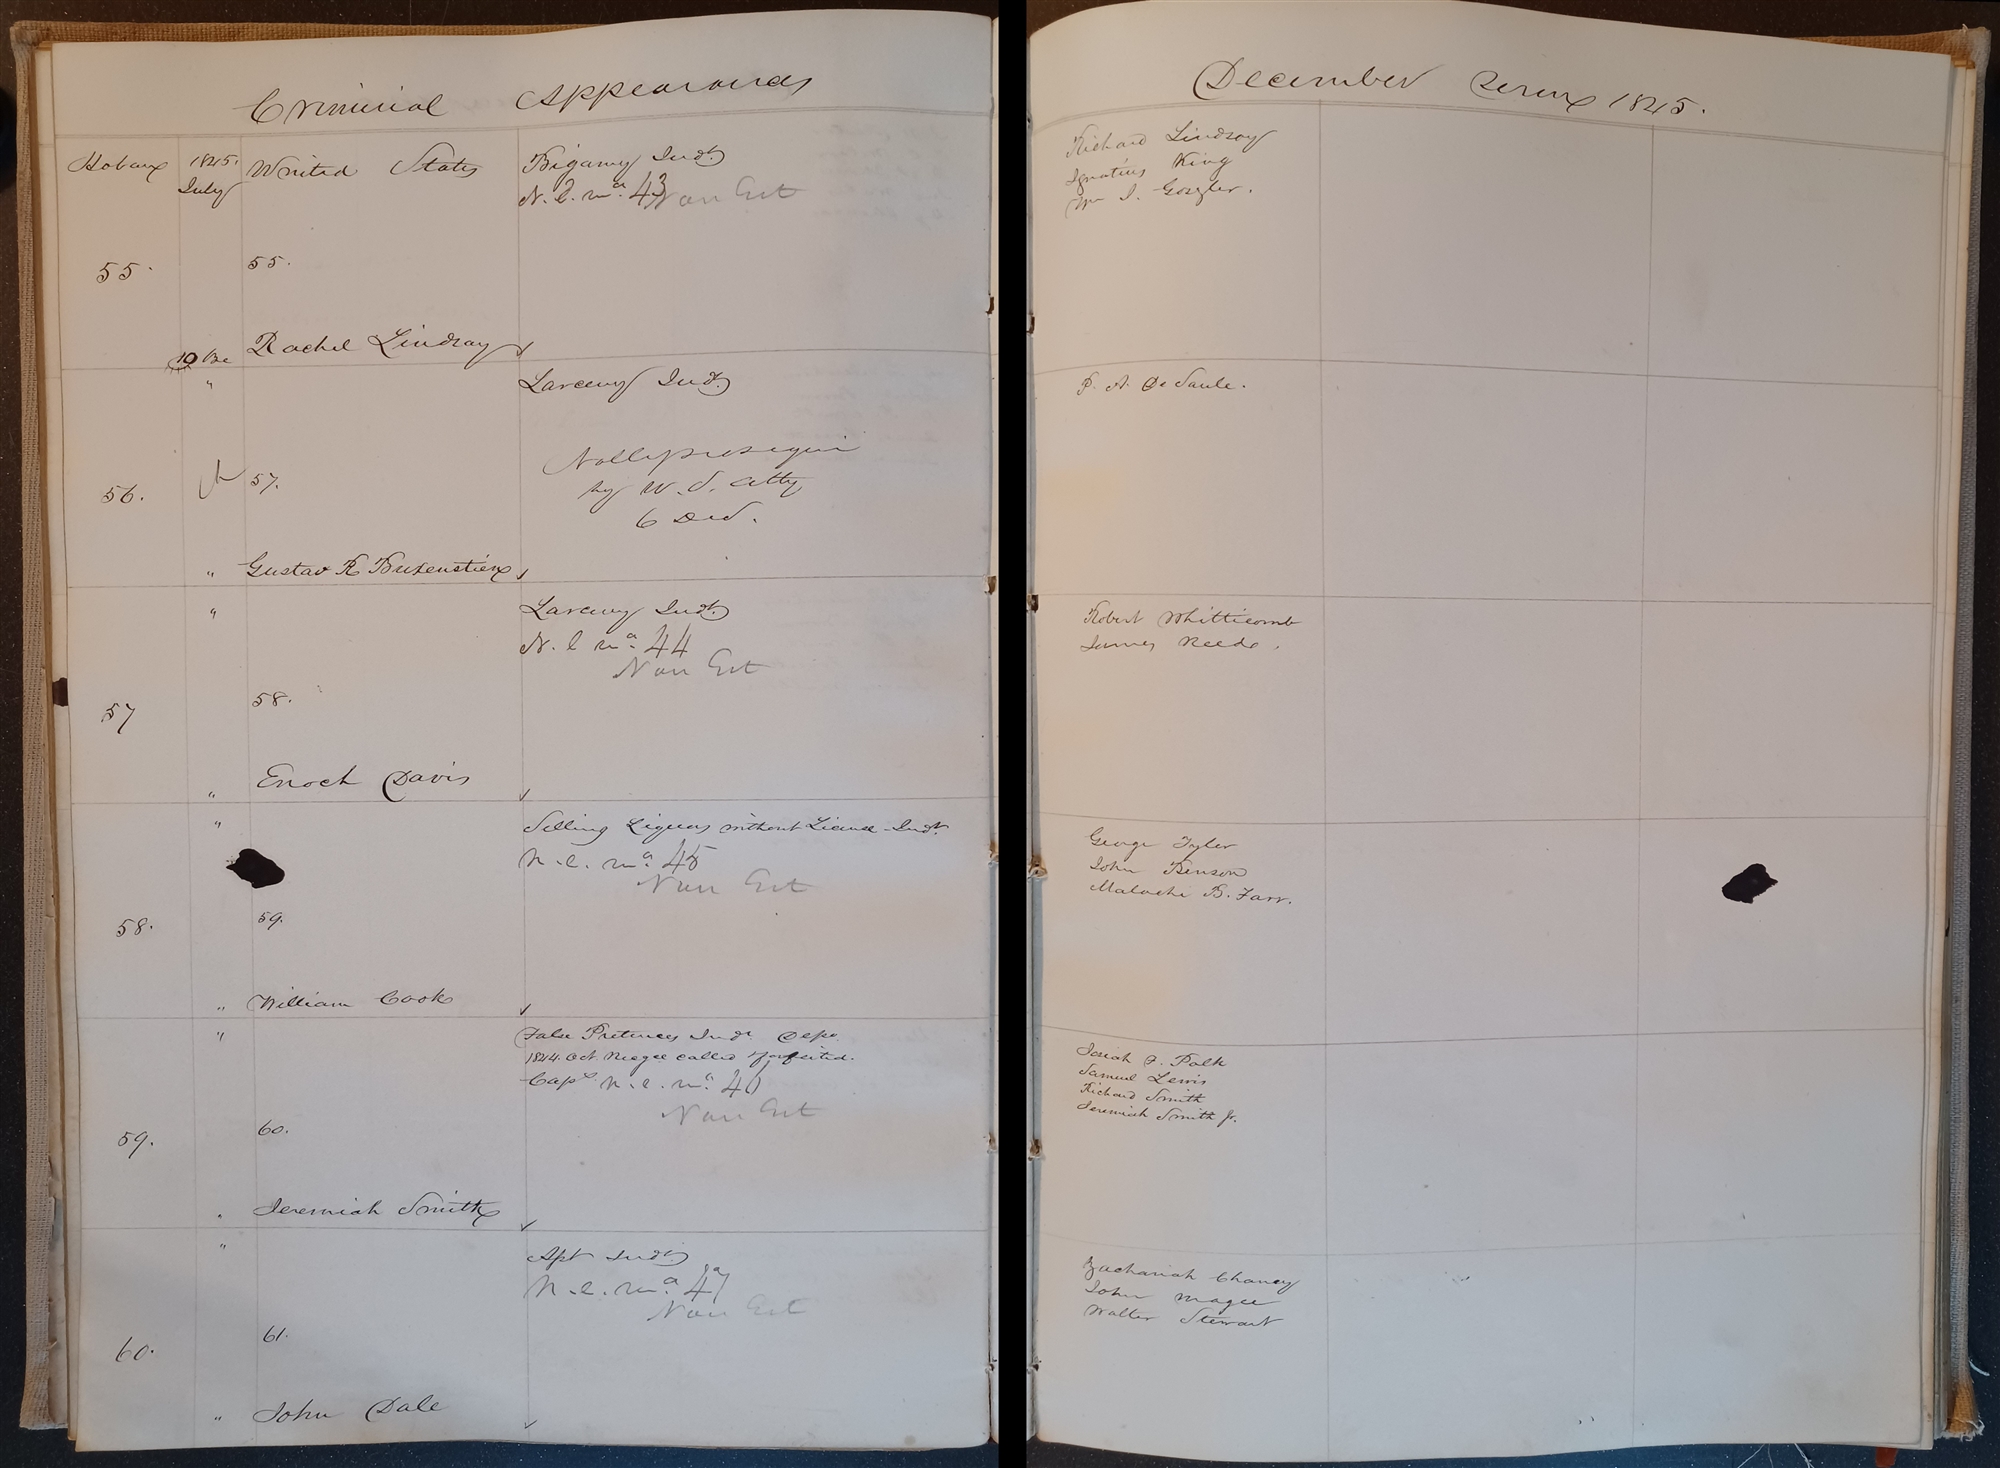 Criminal Appearances
Hoban 1845. United States Bigamy Indt.
July N. C. ma. 43 Non Est
55. 55.
10 Ba Rachel Lindsay
" Larceny Indt.
Nolle prosequi
56. 57. by U. S. Atty
6 Decr.
" Gustav R Bruxenstien
" Larceny Indt.
N. C ma. 44
Non Est
57 58.
" Enoch Davis
" Selling Liquors without License Indt.
N. C. ma. 45
Non Est
58. 59.
" William Cook
" False Pretences Indt.
1844. Oct. called forfeited.
Caps. N. C. ma. 46
Non Est
59. 60.
" Jeremiah Smith
" Apt Indt.
N. C. ma. 47
Non Est
60. 61.
" John Dale
December Term 1845.
Richard Lindsay
Ignatius King
Wm I. Gozler.
P. A. De Saule.
Robert Whitticomb
James Reede.
George Tyler
John Benson
Malachi B. Farr.
Josiah F. Polk
Samuel Lewis
Richard Smith
Jeremiah Smith Jr.
Zachariah Chaney
John Magee
Walter Stewart